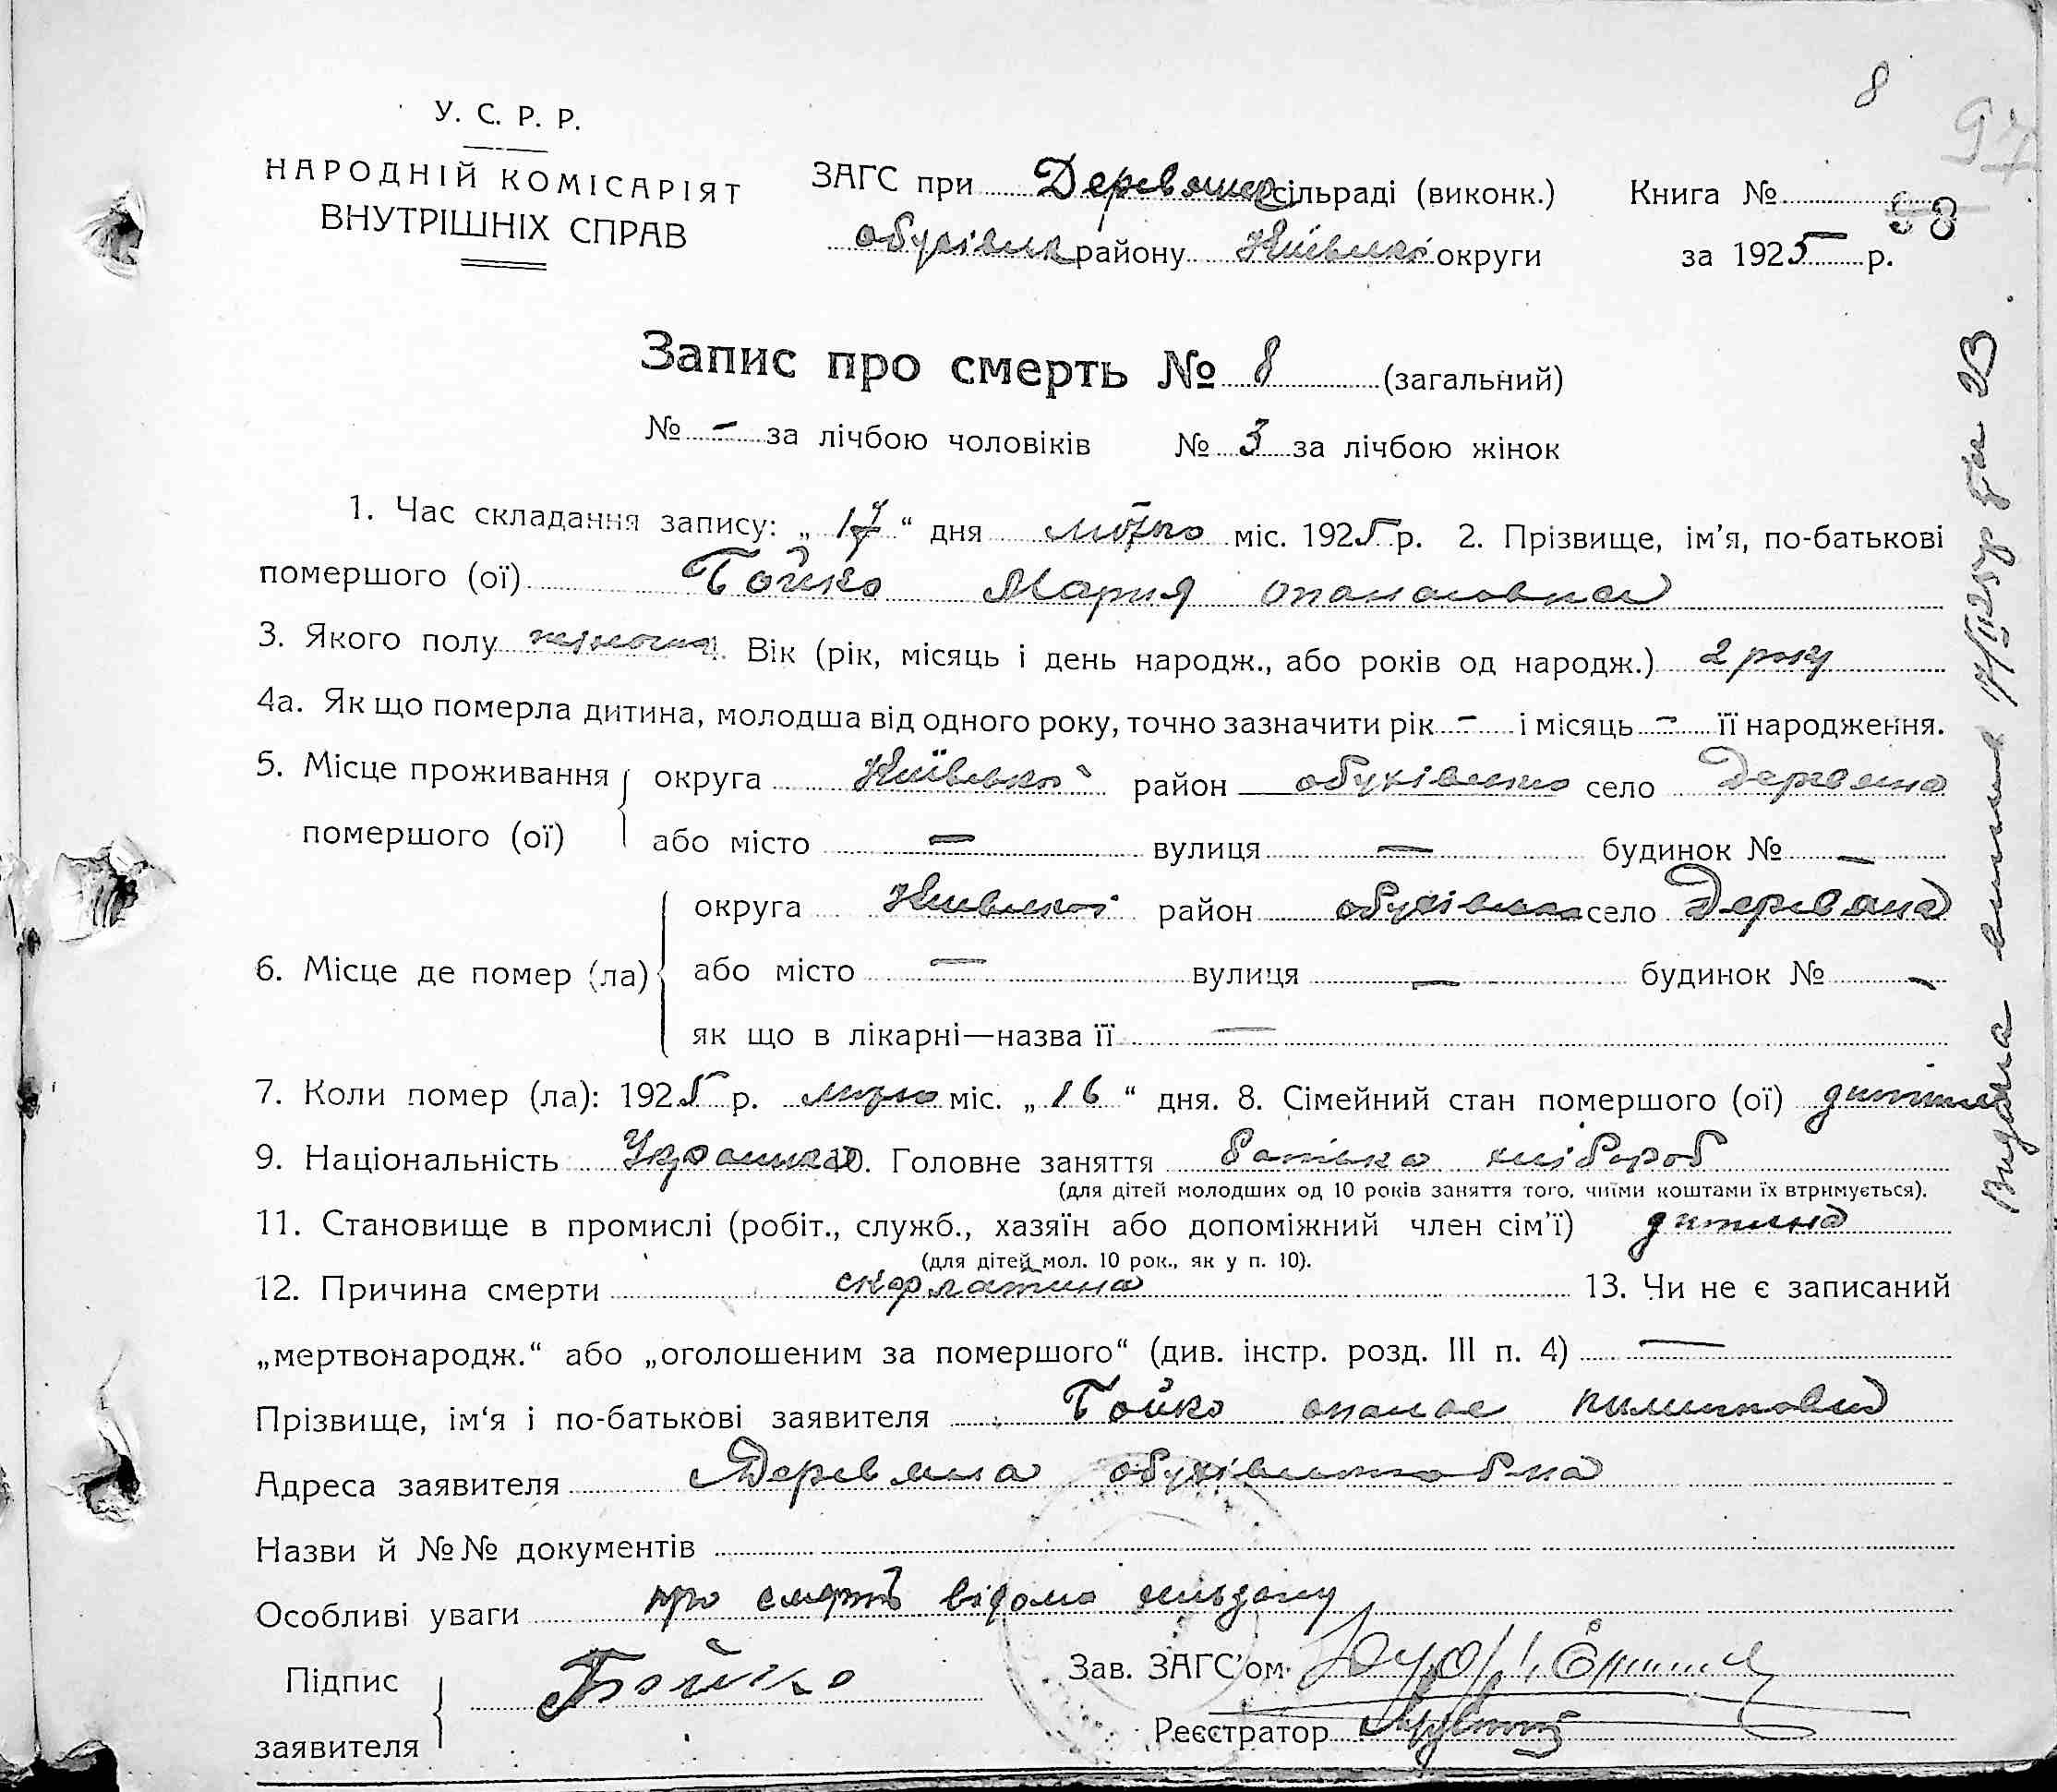 8
97
У. С. Р. Р.
НАРОДНІЙ КОМІСАРІЯТ
ВНУТРІШНІХ СПРАВ
ЗАГС при сільраді (виконк.) Книга №
98
району Київської округи за 1925 р.
Запис про смерть № 8 (загальний)
№ - за лічбою чоловіків № 3 за лічбою жінок
1. Час складання запису: „ 17 “ дня міс. 1925 р. 2. Прізвище, ім'я, по-батькові
помершого (ої) Бойко Мария опанасовна
3. Якого полу жіночий Вік (рік, місяць і день народж., або років од народж.) 2 року
4а. Як що померла дитина, молодша від одного року, точно зазначити рік - і місяць - її народження.
5. Місце проживання округа Київської район село Деревяна
помершого (ої) або місто — вулиця — будинок № —
округа район село Деревяна
6. Місце де помер (ла) або місто — вулиця — будинок № —
як що в лікарні—назва її —
7. Коли помер (ла): 1925 р. міс. „ 16 “ дня. 8. Сімейний стан помершого (ої) дитина
9. Національність Українка 10. Головне заняття батько хлібороб
(для дітей молодших од 10 років заняття того, чиїми коштами їх втримується).
11. Становище в промислі (робіт., служб., хазяїн або допоміжний член сім'ї) дитина
(для дітей мол. 10 рок., як у п. 10).
12. Причина смерти скарлатина 13. Чи не є записаний
„мертвонародж.“ або „оголошеним за помершого“ (див. інстр. розд. III п. 4) —
Прізвище, ім'я і по-батькові заявителя Бойко опанас
Адреса заявителя Деревяна
Назви й №№ документів
Особливі уваги про смерть відомо
Підпис Бойко Зав. ЗАГС'ом
заявителя Реєстратор
Видана